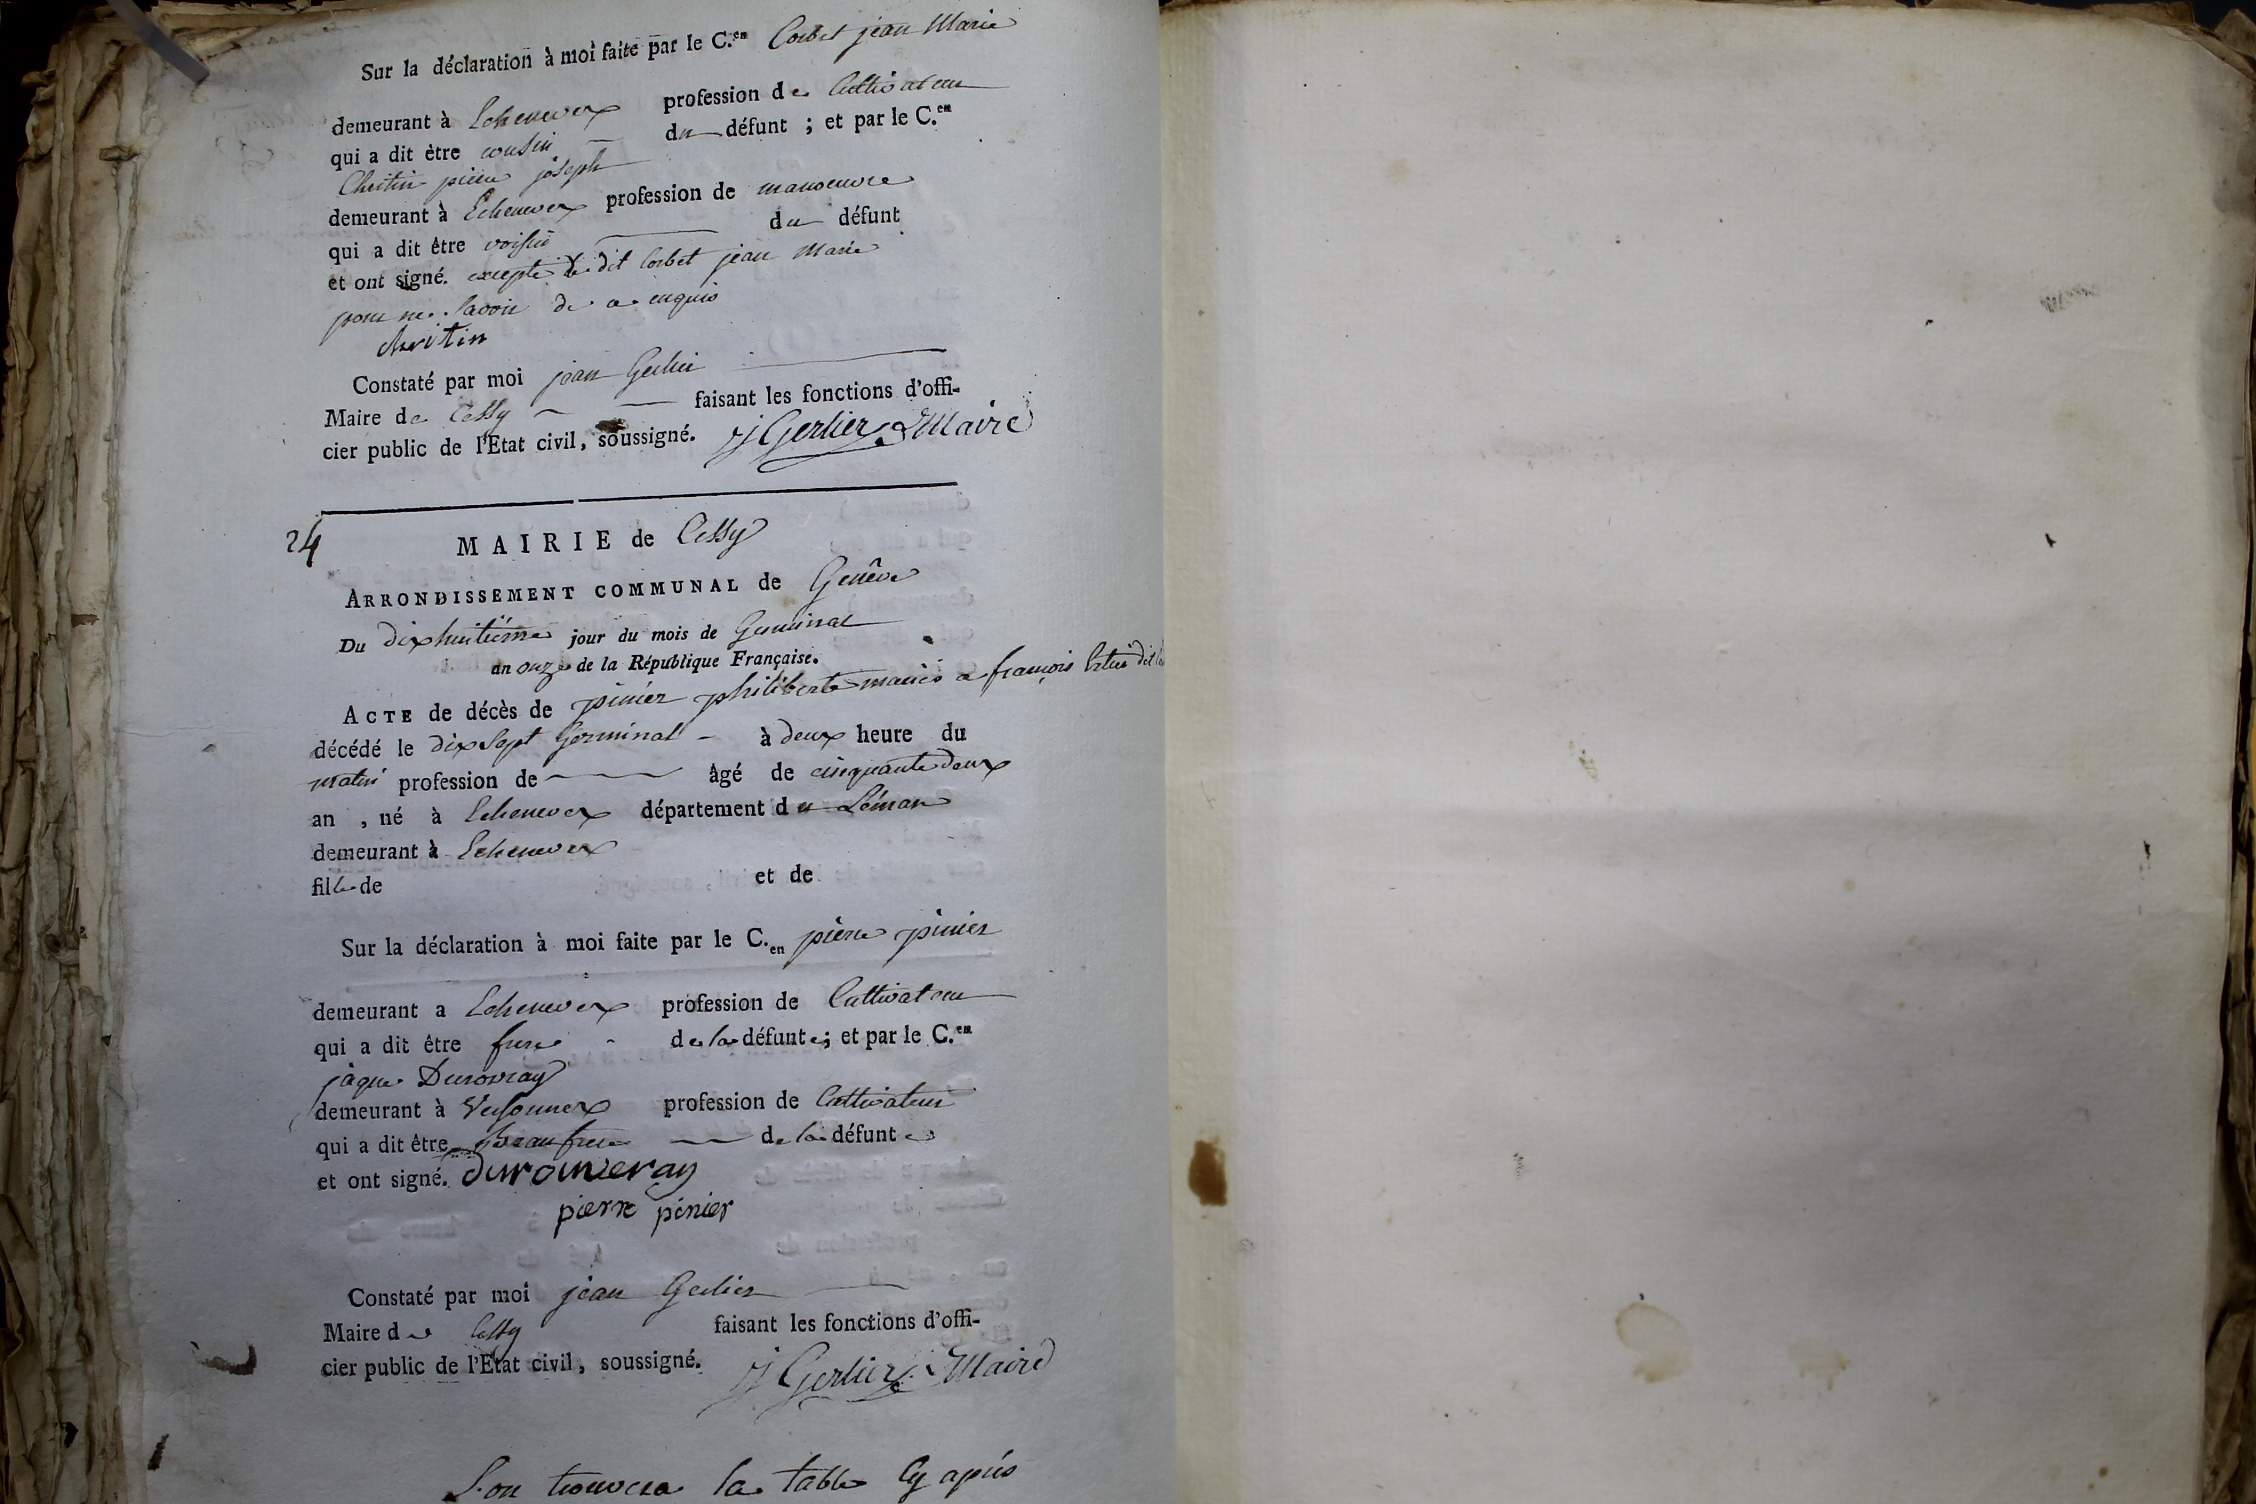 Sur la déclaration à moi faite par le C.en Corbet jean Marie
demeurant à Echenevex profession de Cultivateur
qui a dit être cousin du défunt ; et par le C.en
Christin pierre joseph
demeurant à Echenevex profession de manoeuvre
qui a dit être voisin du défunt
et ont signé. excepté le dit Corbet jean Marie
pour ne savoir de ce enquis
christin
Constaté par moi jean Gerlier
Maire de Cessy faisant les fonctions d'offi-
cier public de l'Etat civil, soussigné. j Gerlier Maire
24
MAIRIE de Cessy
ARRONDISSEMENT COMMUNAL de Genêve
Du dixhuitiéme jour du mois de Germinal
an onze de la République Française.
ACTE de décès de pinier philiberte mariée a françois dit
décédé le dix Sept Germinal à deux heure du
matin profession de âgé de cinquante deux
an , né à Echenevex département du Léman
demeurant à Echenevex
fille de et de
Sur la déclaration à moi faite par le C.en pierre pinier
demeurant a Echenevex profession de Cultivateur
qui a dit être frere de la défunte ; et par le C.en
jaque Durovray
demeurant à Versonnex profession de Cultivateur
qui a dit être Beaufrere de la défunte
et ont signé. durouveray
pierre pinier
Constaté par moi jean Gerlier
Maire de Cessy faisant les fonctions d'offi-
cier public de l'Etat civil, soussigné. j Gerlier Maire
L'on trouvera la table Cy après